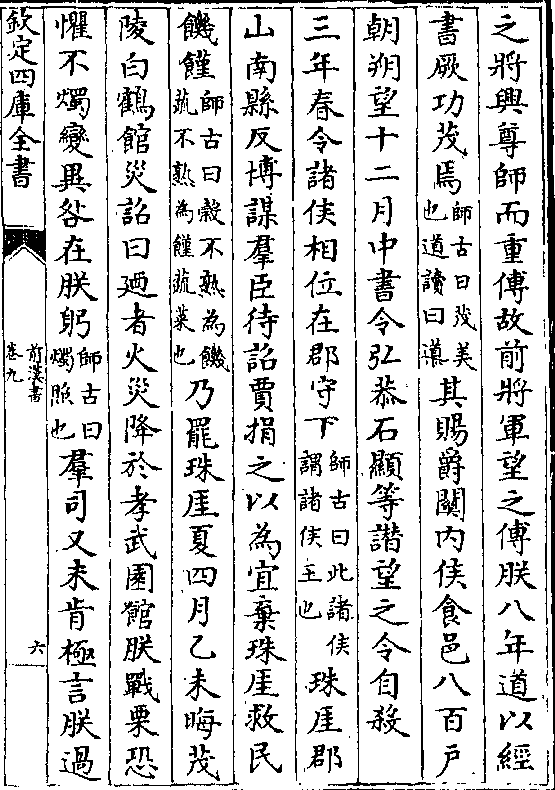 之將興尊師而重傅故前將軍望之傅朕八年道以經
書厥功茂焉師古曰茂美也道讀曰導其賜爵關内侯食邑八百户
朝朔望十二月中書令弘恭石顯等譖望之令自殺
三年春令諸侯相位在郡守下師古曰此諸侯謂諸侯王也珠厓郡
山南縣反博謀羣臣待詔賈捐之以為宜棄珠厓救民
饑饉師古曰穀不熟為饑蔬不熟為饉蔬菜也乃罷珠厓夏四月乙未晦茂
陵白鶴館災詔曰迺者火災降於孝武園館朕戰栗恐
懼不燭變異咎在朕躬師古曰燭照也羣司又未肯極言朕過
欽定四庫全書
前漢書
卷九
六